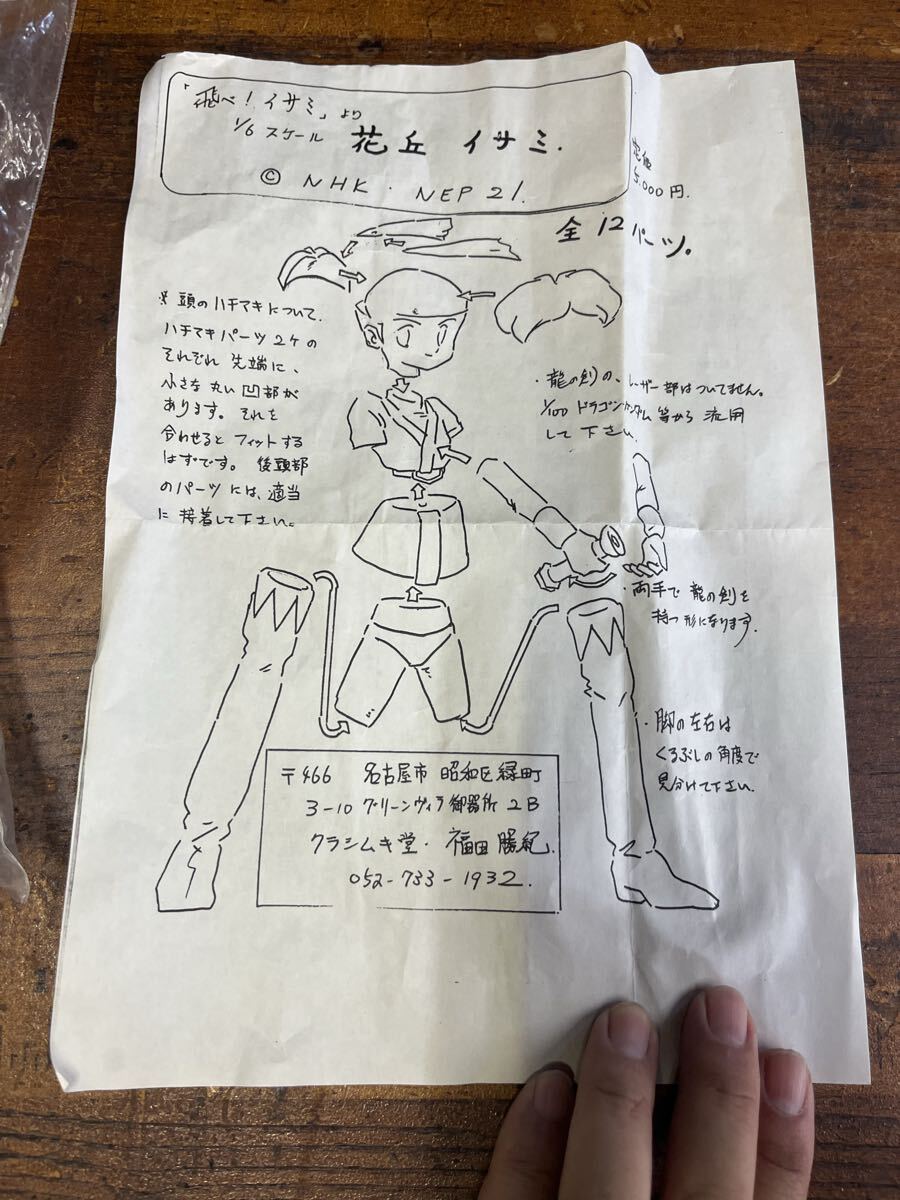 「飛べ！イサミ」より
1/6 スケール 花丘 イサミ.
© NHK . NEP 21.
定価
5.000円.
全12パーツ。
※ 頭のハチマキについて.
ハチマキパーツ2ケの
それぞれ 先端に、
小さな 丸い 凹部が
あります。 それを
合わせると フィットする
はずです。 後頭部
のパーツには、適当
に 接着して下さい。
・龍の剣の、レーザー部はついてません。
1/100 ドラゴンガンダム等から 流用
して 下さい.
・両手で 龍の剣を
持つ形になります.
・脚の左右は
くるぶしの角度で
見分けて下さい.
〒466 名古屋市 昭和区緑町
3-10 グリーンヴィラ御器所 2B
クラシムキ堂. 福田 勝紀.
052-733-1932.